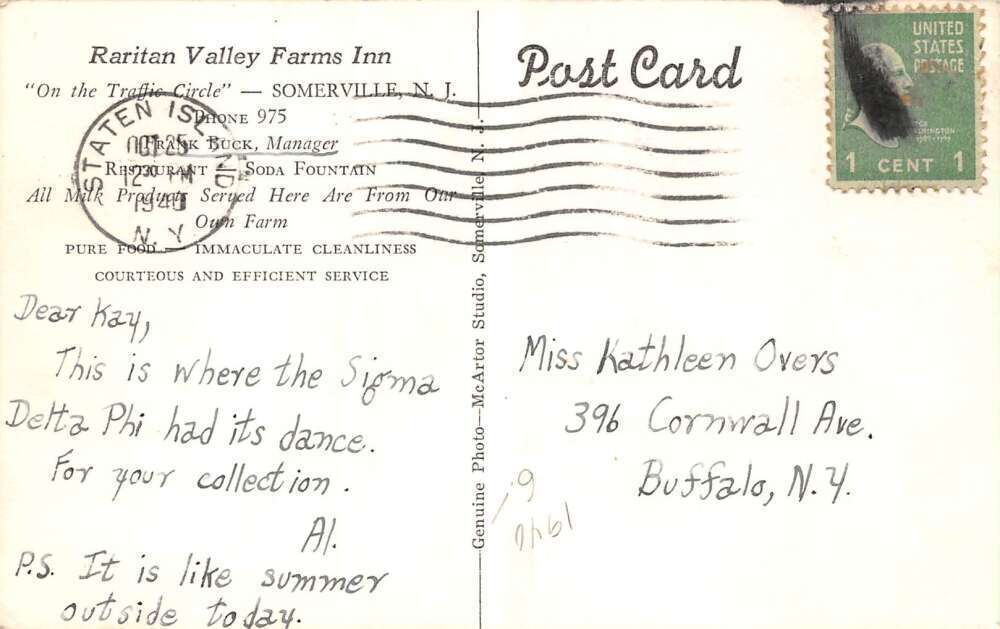 Raritan Valley Farms Inn
"On the Traffic Circle" — SOMERVILLE, N. J.
PHONE 975
FRANK BUCK, Manager
RESTAURANT SODA FOUNTAIN
All Milk Products Served Here Are From Our
Own Farm
PURE FOOD — IMMACULATE CLEANLINESS
COURTEOUS AND EFFICIENT SERVICE
STATEN ISLAND
OCT 25
1940
N. Y.
Dear Kay,
This is where the Sigma
Delta Phi had its dance.
For your collection.
Al.
P.S. It is like summer
outside today.
Genuine Photo—McArtor Studio, Somerville, N. J.
Post Card
UNITED
STATES
POSTAGE
WASHINGTON
1 CENT 1
Miss Kathleen Overs
396 Cornwall Ave.
Buffalo, N.Y.
1940